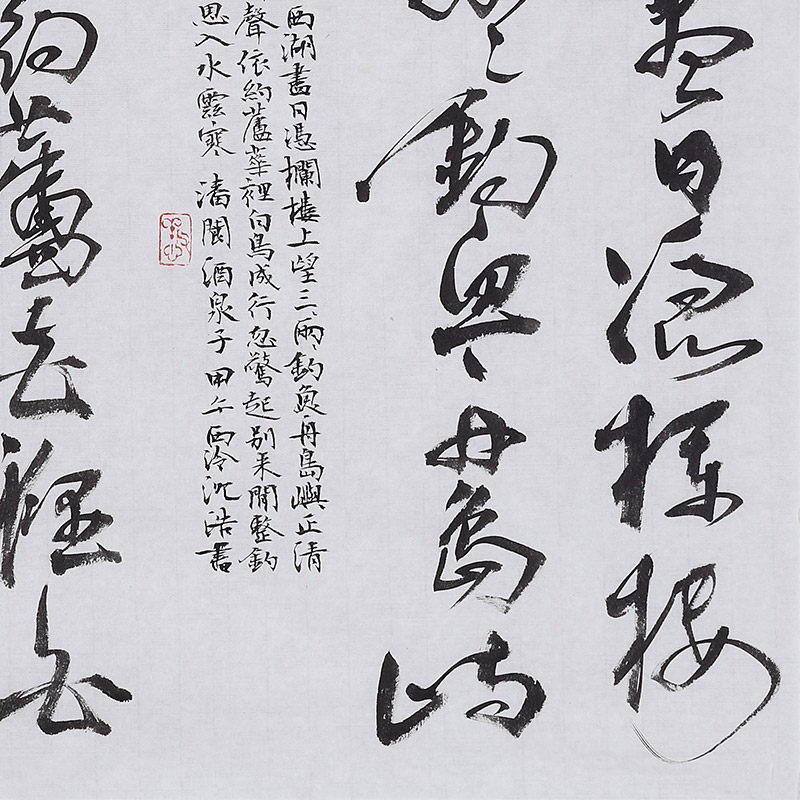 盡日憑欄樓
〻釣魚舟島嶼
西湖盡日憑欄樓上望三〻兩〻釣魚舟島嶼正清
聲依約蘆華裡白鳥成行忽驚起別來閒整釣
思入水雲寒 潘閬酒泉子 甲午西泠沈浩書
約蘆花裡白